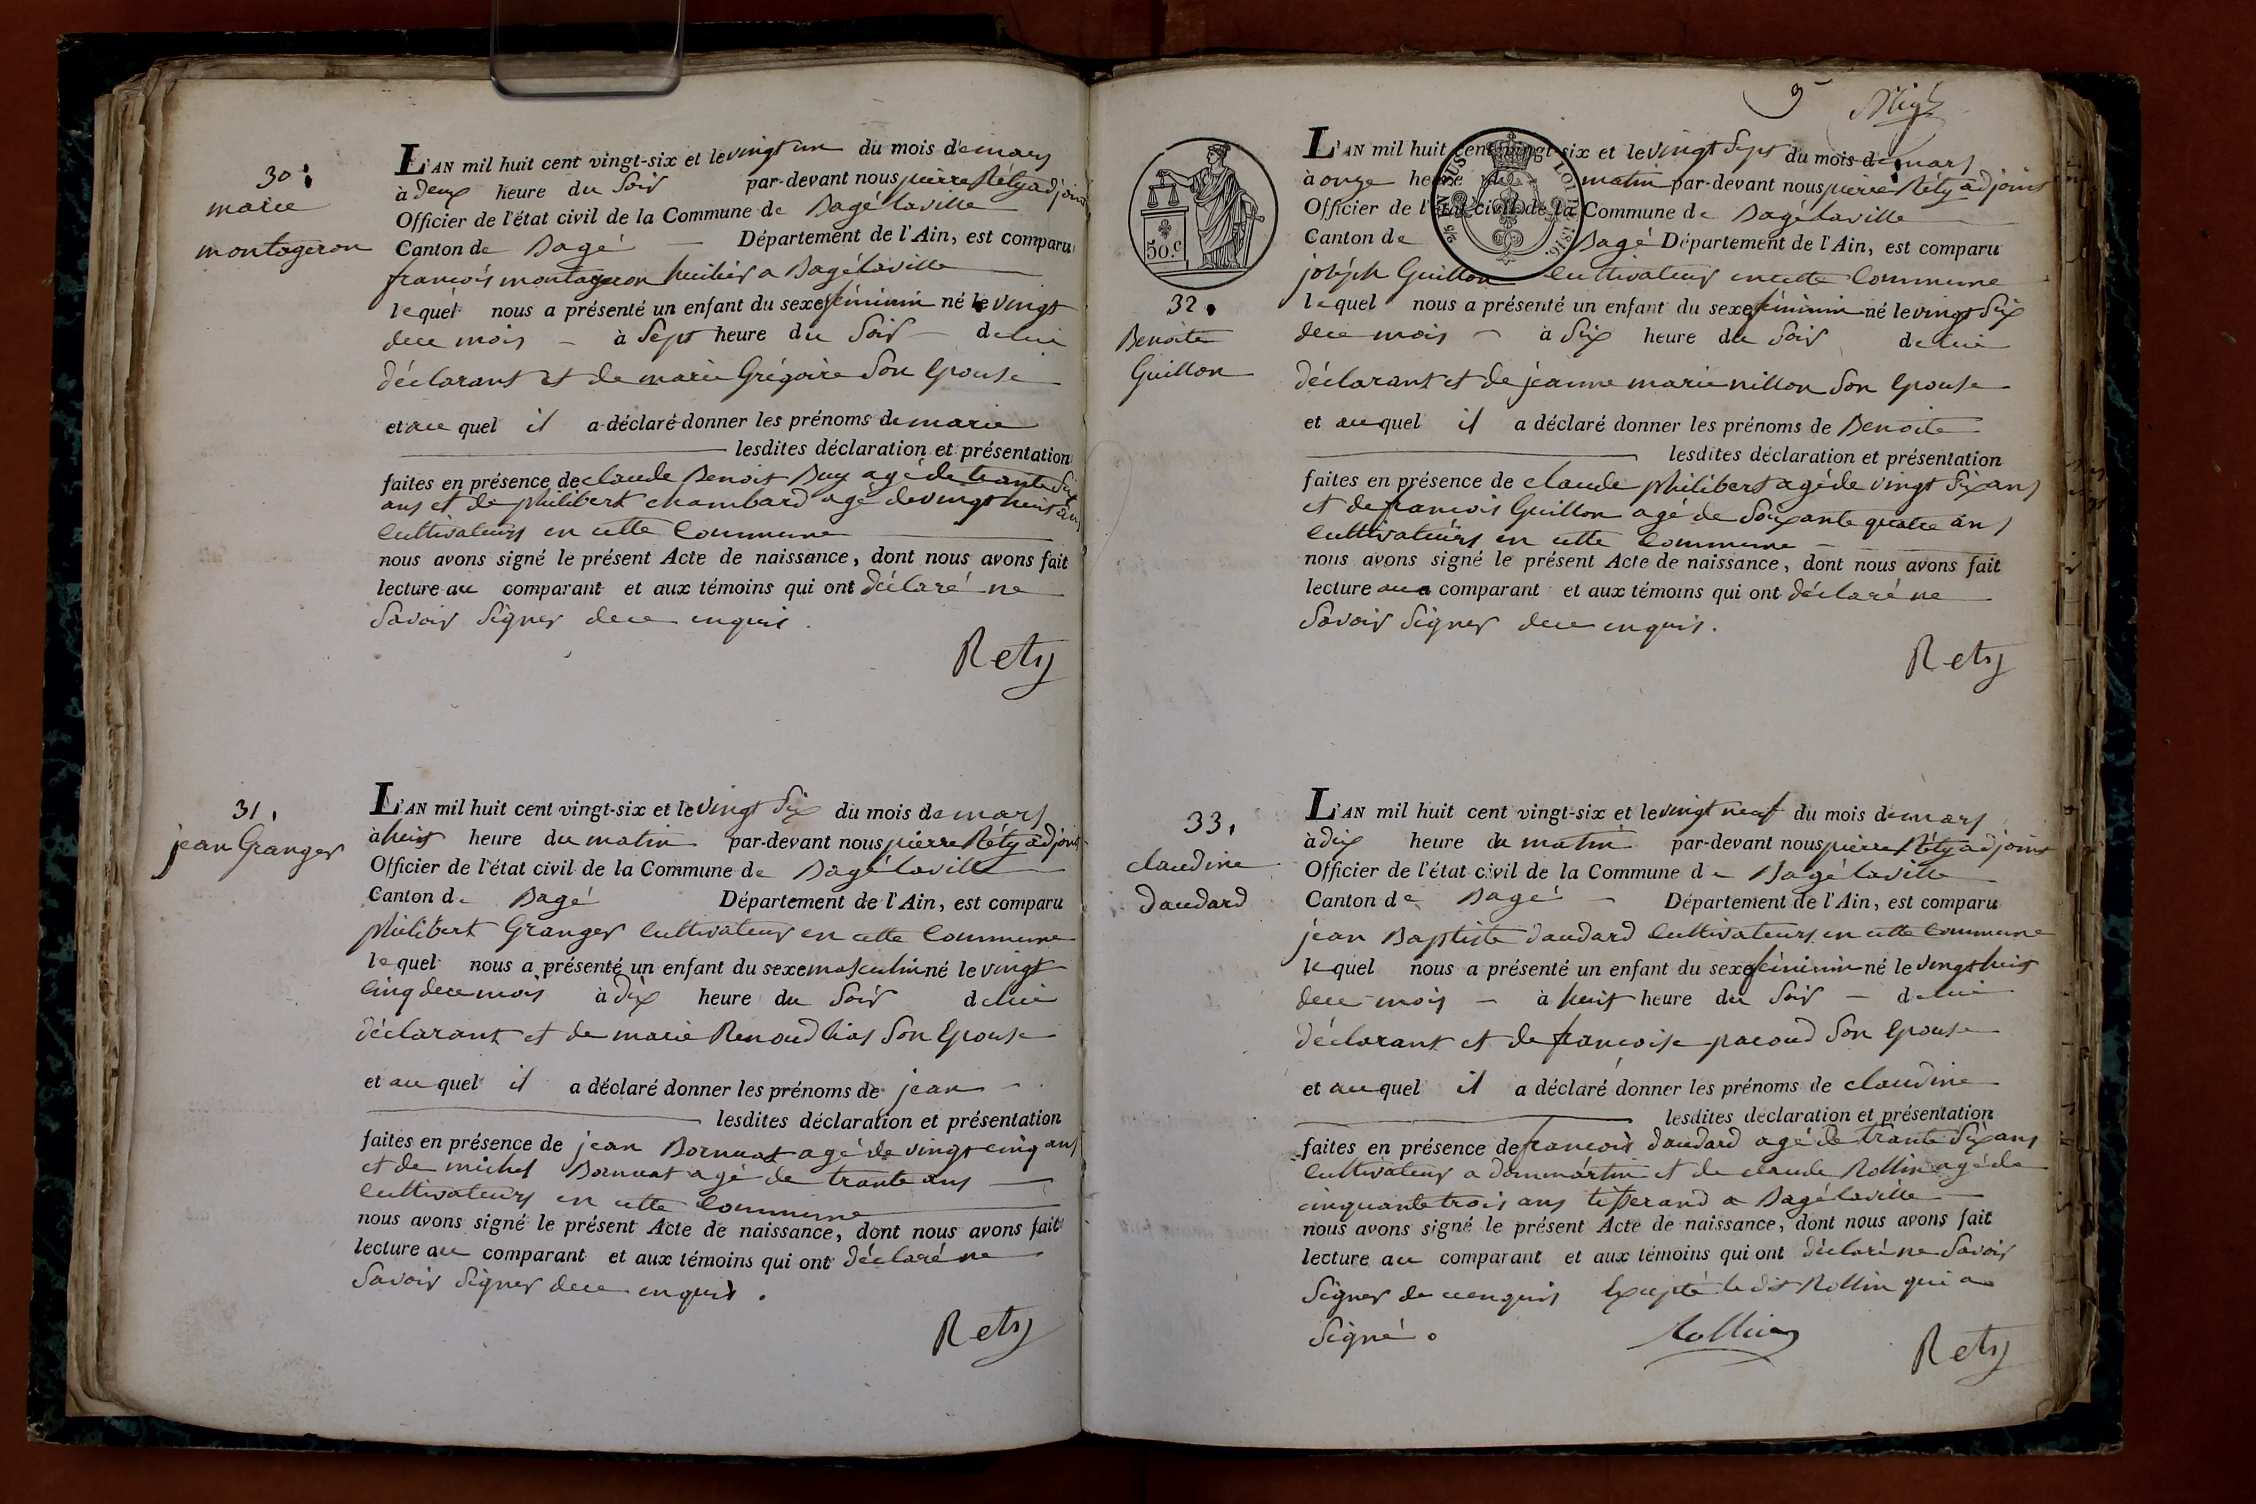 30.
marie
montageron
L'AN mil huit cent vingt-six et le vingt un du mois de mars
à deux heure du Soir par-devant nous pierre Réty adjoint
Officier de l'état civil de la Commune de Bagé laville
Canton de Bagé Département de l'Ain, est comparu
françois montageron huilier a Bagé laville
lequel nous a présenté un enfant du sexe féminin né le vingt
de ce mois à Sept heure du Soir de lui
déclarant et de marie Grégoire Son Epouse
et au quel il a déclaré donner les prénoms de marie
lesdites déclaration et présentation
faites en présence de claude Benoit Buy agé de trante Six
ans et de philibert chambard agé de vingt huit ans
Cultivateurs en cette Commune
nous avons signé le présent Acte de naissance, dont nous avons fait
lecture au comparant et aux témoins qui ont déclaré ne
Savoir Signer de ce enquis.
Rety
31.
jean Granger
L'AN mil huit cent vingt-six et le vingt Six du mois de mars
à huit heure du matin par-devant nous pierre Réty adjoint
Officier de l'état civil de la Commune de Bagé laville
Canton de Bagé Département de l'Ain, est comparu
philibert Granger Cultivateur en cette Commune
lequel nous a présenté un enfant du sexe masculin né le vingt
Cinq de ce mois à dix heure du Soir de lui
déclarant et de marie Renoud lias Son Epouse
et au quel il a déclaré donner les prénoms de jean
lesdites déclaration et présentation
faites en présence de jean Bornuat agé de vingt cinq ans
et de michel Bornuat agé de trante ans
Cultivateurs en cette Commune
nous avons signé le présent Acte de naissance, dont nous avons fait
lecture au comparant et aux témoins qui ont déclaré ne
Savoir Signer de ce enquis.
Rety
9
50.c
32.
Benoite
Guillon
L'AN mil huit cent vingt-six et le vingt Sept du mois de mars
à onze heure du matin par-devant nous pierre Réty adjoint
Officier de l'état civil de la Commune de Bagé laville
Canton de Bagé Département de l'Ain, est comparu
joséph Guillon Cultivateur en cette Commune
lequel nous a présenté un enfant du sexe féminin né le vingt Six
de ce mois à Six heure du Soir de lui
déclarant et de jeanne marie nillon Son Epouse
et au quel il a déclaré donner les prénoms de Benoite
lesdites déclaration et présentation
faites en présence de claude philibert agé de vingt Six ans
et de françois Guillon agé de Soixante quatre ans
Cultivateurs en cette Commune
nous avons signé le présent Acte de naissance, dont nous avons fait
lecture au comparant et aux témoins qui ont déclaré ne
Savoir Signer de ce enquis.
Rety
33.
claudine
daudard
L'AN mil huit cent vingt-six et le vingt neuf du mois de mars
à dix heure du matin par-devant nous pierre Réty adjoint
Officier de l'état civil de la Commune de Bagé laville
Canton de Bagé Département de l'Ain, est comparu
jean Baptiste daudard Cultivateurs en cette Commune
lequel nous a présenté un enfant du sexe féminin né le vingt huit
de ce mois à huit heure du Soir de lui
déclarant et de francoise pacoud Son Epouse
et au quel il a déclaré donner les prénoms de claudine
lesdites déclaration et présentation
faites en présence de francois daudard agé de trante Six ans
Cultivateur a dommartin et de claude Rollin agé de
cinquante trois ans tisserand a Bagé laville
nous avons signé le présent Acte de naissance, dont nous avons fait
lecture au comparant et aux témoins qui ont déclaré ne Savoir
Signer de ce enquis Excepté le dit Rollin qui a
Signé.
Rollin
Rety